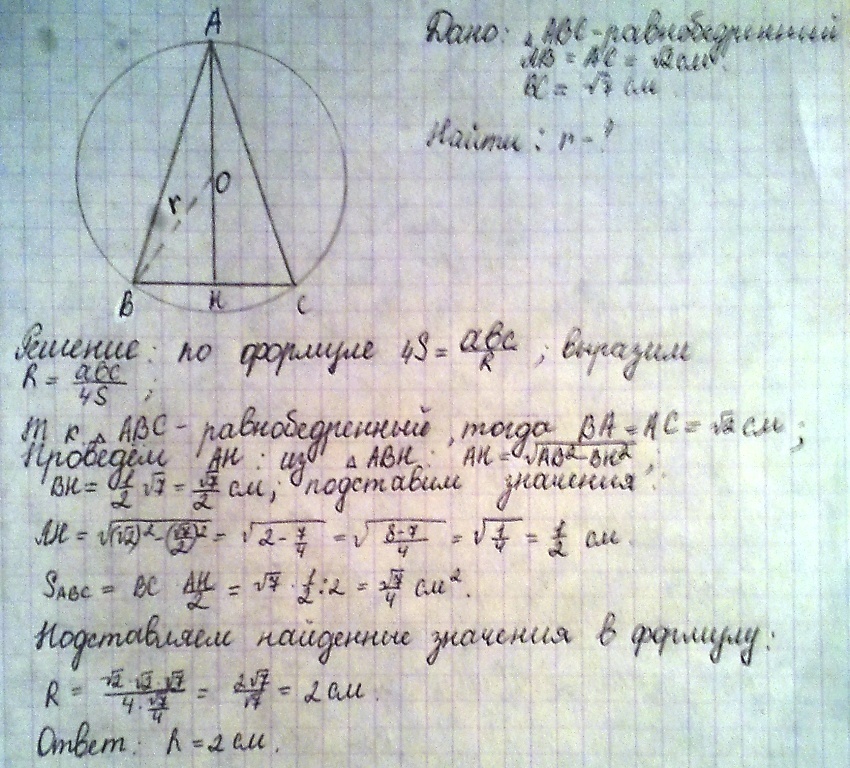 A
Дано: △ ABC - равнобедренный
AB = AC = √2 см.
BC = √7 см
Найти: r - ?
O
r
B H C
Решение: по формуле 4S = abc/R ; выразим
R = abc/4S ;
Т.к. △ ABC - равнобедренный, тогда BA = AC = √2 см;
Проведем AH: из △ ABH: AH = √(AB² - BH²);
BH = 1/2 √7 = √7/2 см; подставим значения:
AH = √((√2)² - (√7/2)²) = √(2 - 7/4) = √((8-7)/4) = √(1/4) = 1/2 см.
SABC = BC · AH/2 = √7 · 1/2 : 2 = √7/4 см².
Подставляем найденные значения в формулу:
R = (√2 · √2 · √7)/(4 · √7/4) = 2√7/√7 = 2 см.
Ответ: R = 2 см.